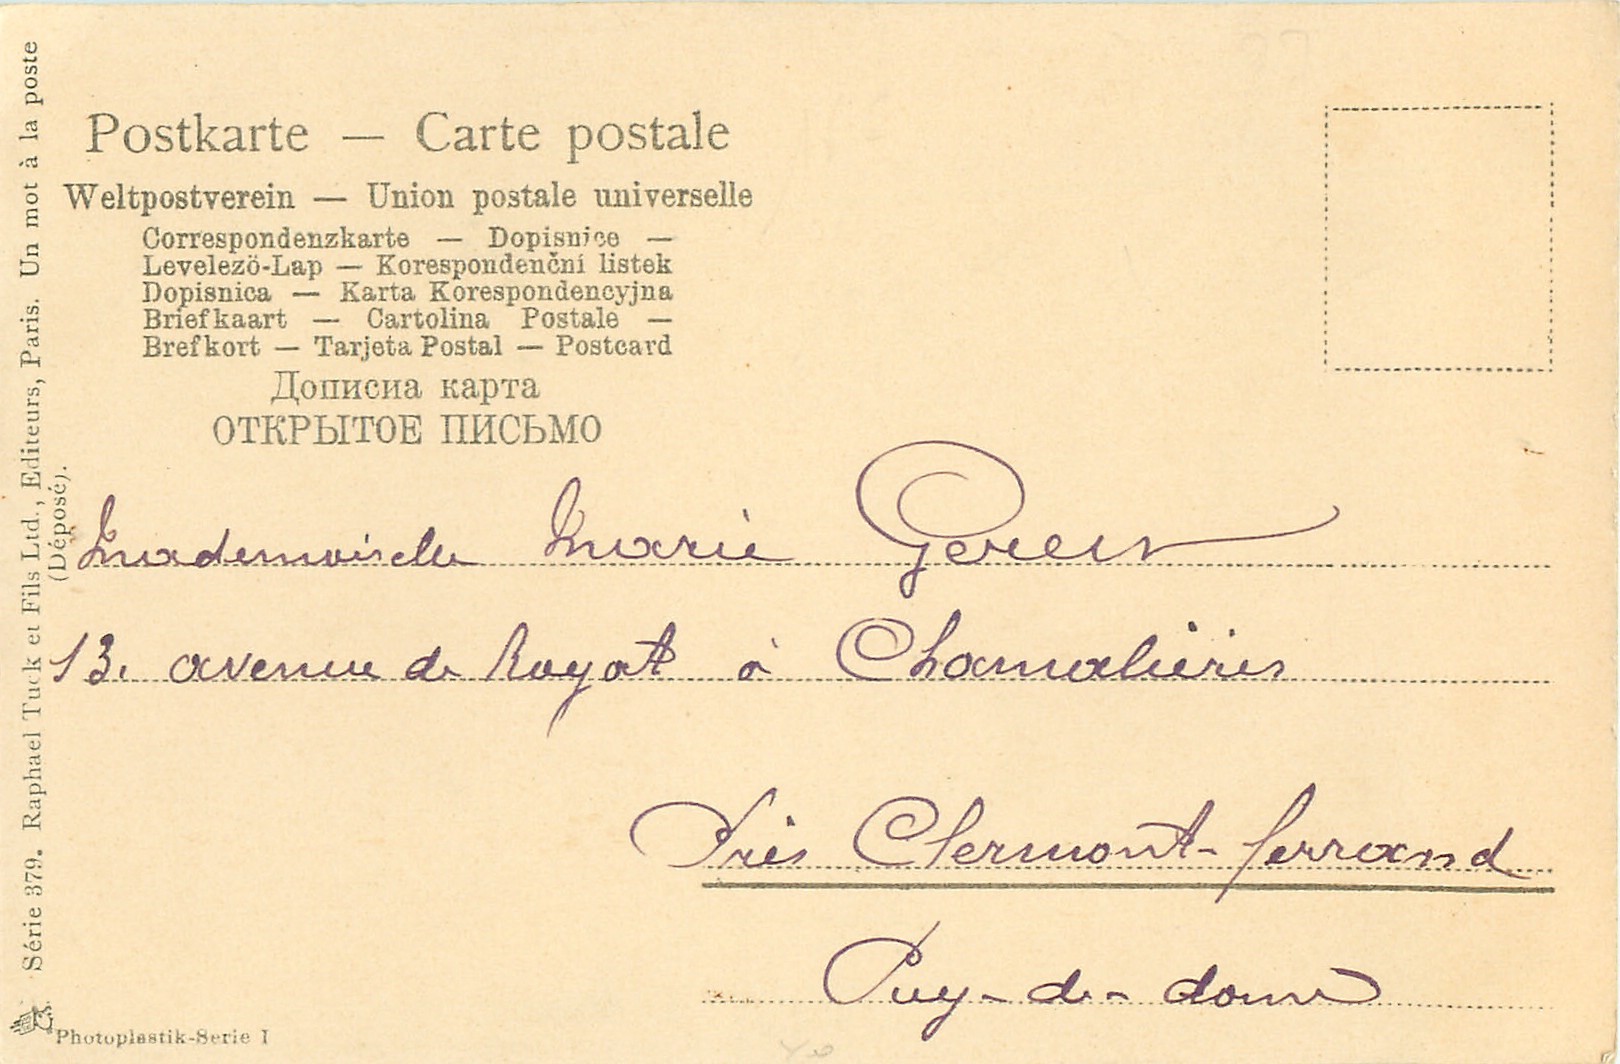 Postkarte — Carte postale
Weltpostverein — Union postale universelle
Correspondenzkarte — Dopisnice —
Levelezö-Lap — Korespondenční listek
Dopisnica — Karta Korespondencyjna
Briefkaart — Cartolina Postale —
Brefkort — Tarjeta Postal — Postcard
Дописна карта
ОТКРЫТОЕ ПИСЬМО
Mademoiselle Marie
13. avenue de Royat à Chamalières
Près Clermont-ferrand
Puy-de-dome
Série 379. Raphael Tuck et Fils Ltd., Editeurs, Paris. Un mot à la poste
(Déposé).
Photoplastik-Serie I